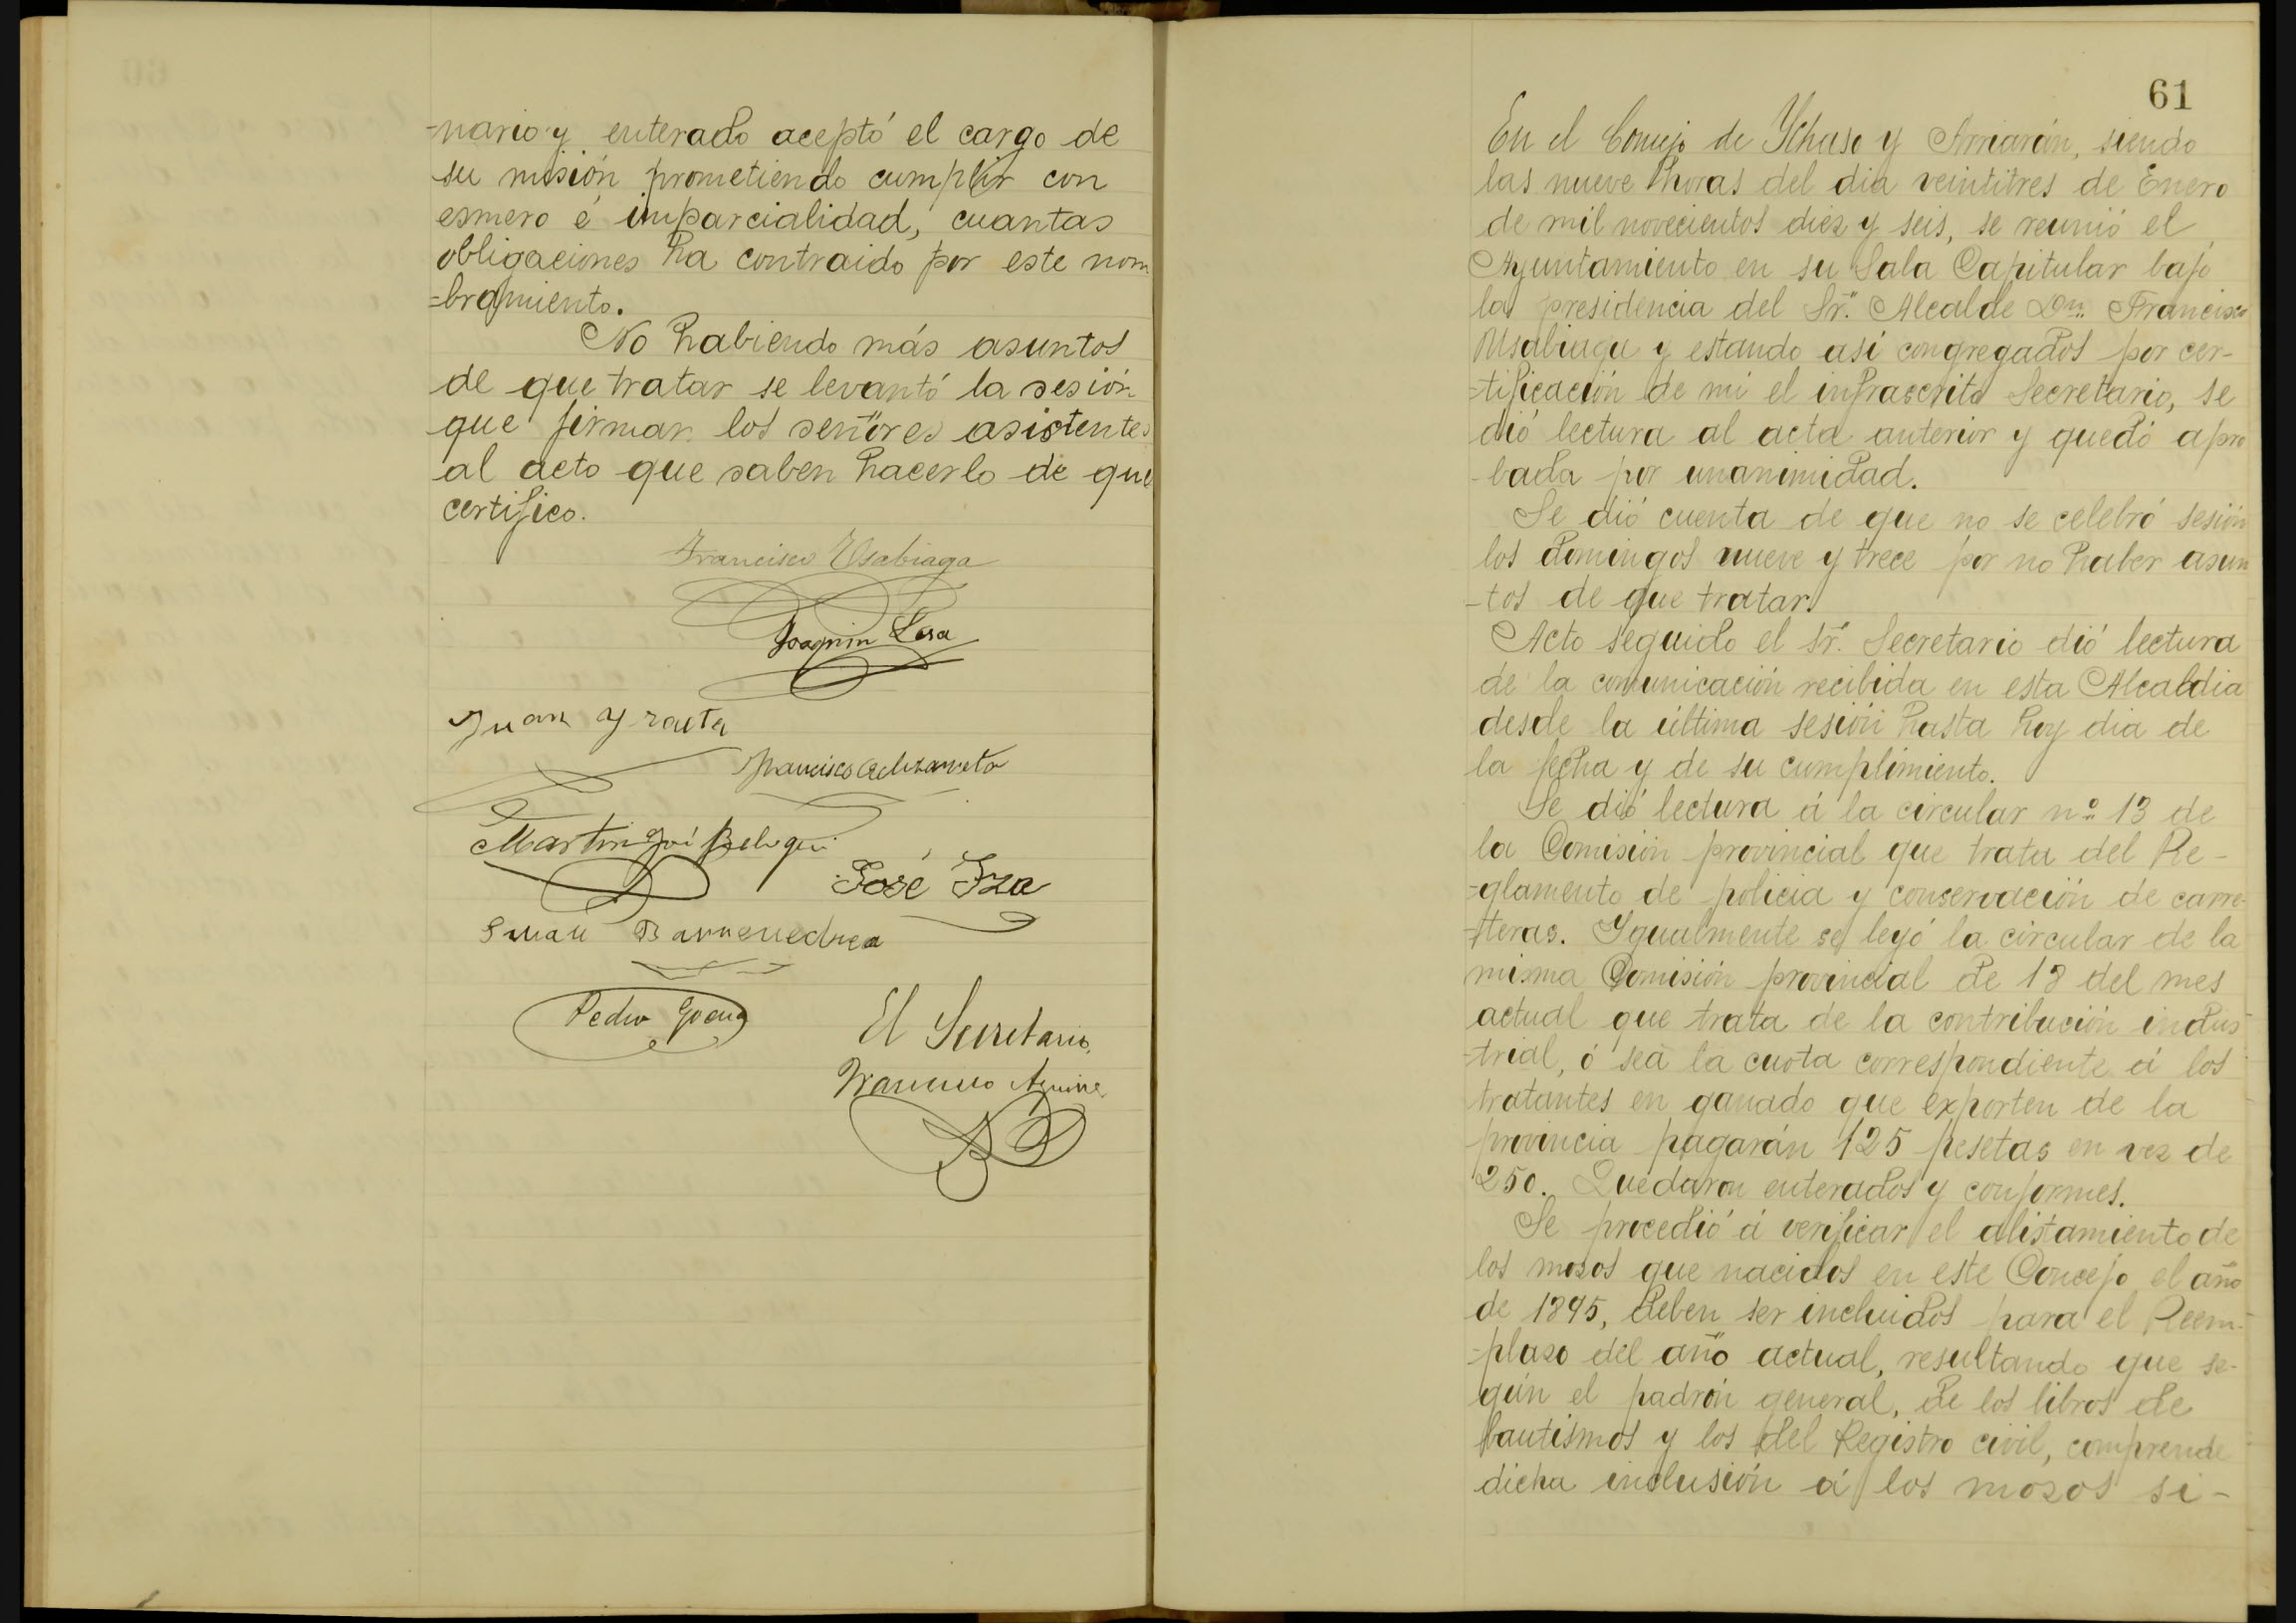 -nario y enterado aceptó el cargo de
su misión prometiendo cumplir con
esmero é imparcialidad, cuantas
obligaciones ha contraido por este nom
=bramiento.
No habiendo más asuntos
de que tratar se levantó la sesión
que firman los señores asistentes
al acto que saben hacerlo de que
certifico.
Francisco Usabiaga
Joaquin Lasa
Juan Yraeta
Francisco
Martin José Beloqui
José Yza
Juan Barrenechea
Pedro Goena
El Secretario,
Francisco Aguirre
61
En el Concejo de Ychaso y Arriarán, siendo
las nueve horas del dia veintitres de Enero
de mil novecientos diez y seis, se reunió el
Ayuntamiento en su Sala Capitular bajo
la presidencia del Sr. Alcalde Dn. Francisco
Usabiaga y estando asi congregados por cer-
-tificación de mi el infrascrito Secretario, se
dió lectura al acta anterior y quedó apro
-bada por unanimidad.
Se dió cuenta de que no se celebró sesión
los domingos nueve y trece por no haber asun
-tos de que tratar.
Acto seguido el Sr. Secretario dió lectura
de la comunicación recibida en esta Alcaldia
desde la última sesión hasta hoy dia de
la fecha y de su cumplimiento.
Se dió lectura á la circular nº 13 de
la Comisión provincial que trata del Re-
-glamento de policia y conservación de carre-
-teras. Ygualmente se leyó la circular de la
misma Comisión provincial de 18 del mes
actual que trata de la contribución indus-
-trial, ó sea la cuota correspondiente á los
tratantes en ganado que exporten de la
provincia pagarán 125 pesetas en vez de
250. Quedaron enterados y conformes.
Se procedió á verificar el alistamiento de
los mozos que nacidos en este Concejo el año
de 1895, deben ser incluidos para el Reem-
-plazo del año actual, resultando que se-
gún el padrón general, de los libros de
bautismos y los del Registro civil, comprende
dicha inclusión á los mozos si-